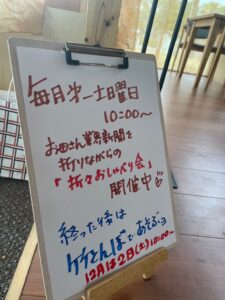 毎月第一土曜日
10:00〜
お母さん業界新聞を
折りながらの
「折々おしゃべり会」
開催中
終った後は
竹とんぼであそぶヨ
12月は2日(土)10:00〜